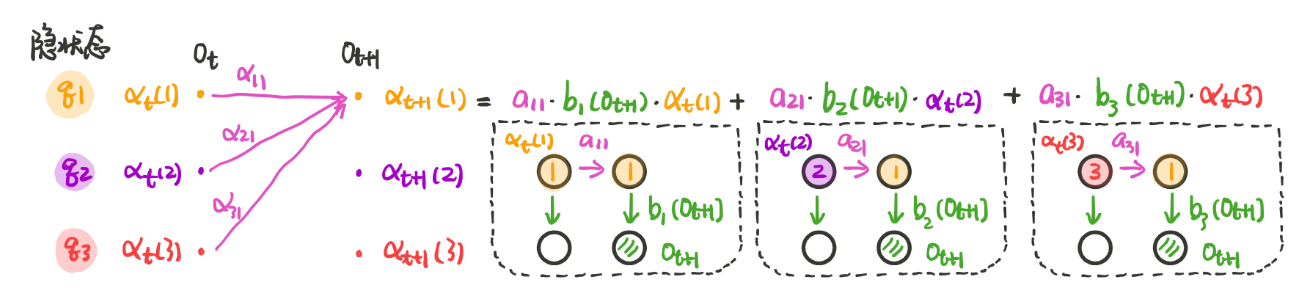 隐状态 O_t O_{t+1}
q_1 α_t(1) α_{11} α_{t+1}(1) = a_{11} · b_1(O_{t+1}) · α_t(1) + a_{21} · b_2(O_{t+1}) · α_t(2) + a_{31} · b_3(O_{t+1}) · α_t(3)
α_{21}
q_2 α_t(2) α_{t+1}(2)
α_{31}
q_3 α_t(3) α_{t+1}(3)
α_t(1) a_{11}
1 1
b_1(O_{t+1})
O_{t+1}
α_t(2) a_{21}
2 1
b_2(O_{t+1})
O_{t+1}
α_t(3) a_{31}
3 1
b_3(O_{t+1})
O_{t+1}